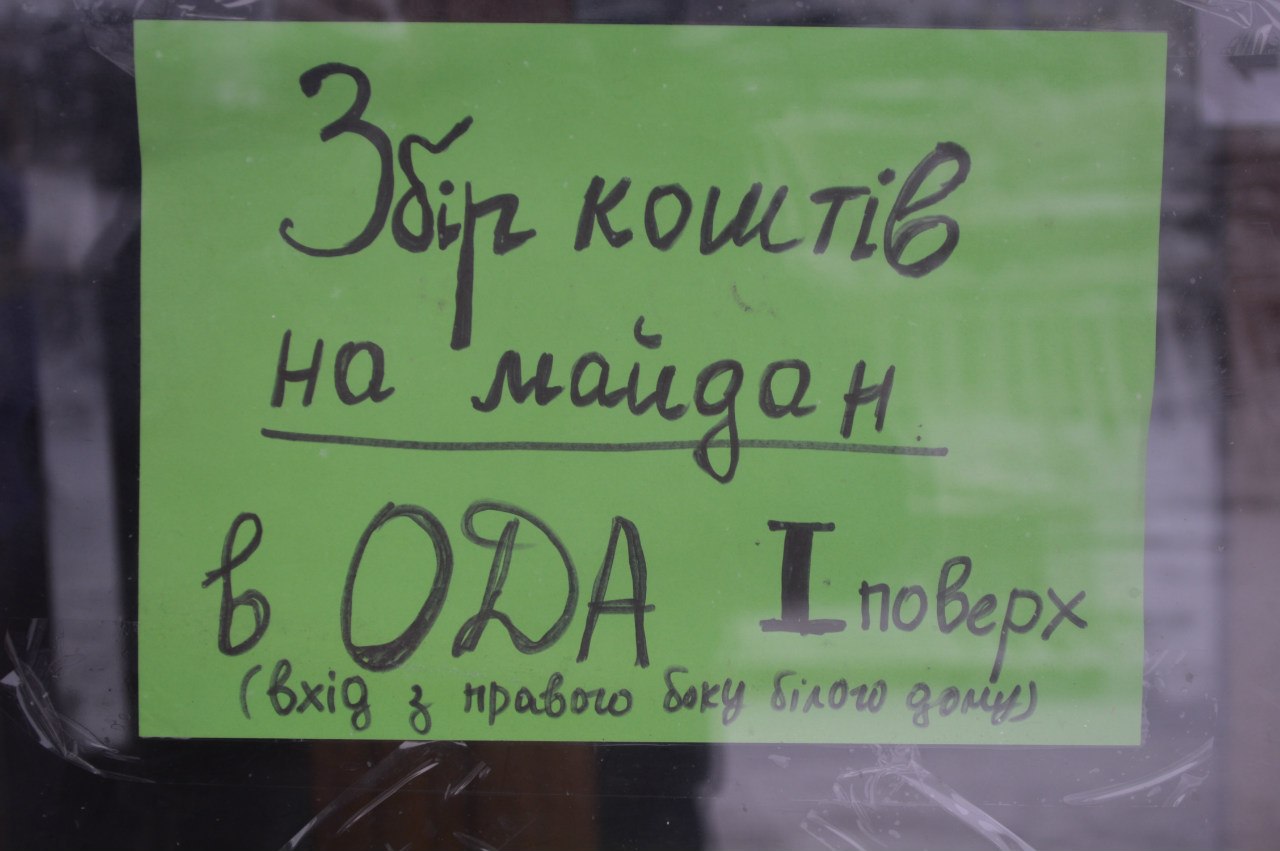 Збір коштів
на майдан
в ОДА І поверх
(вхід з правого боку білого дому)